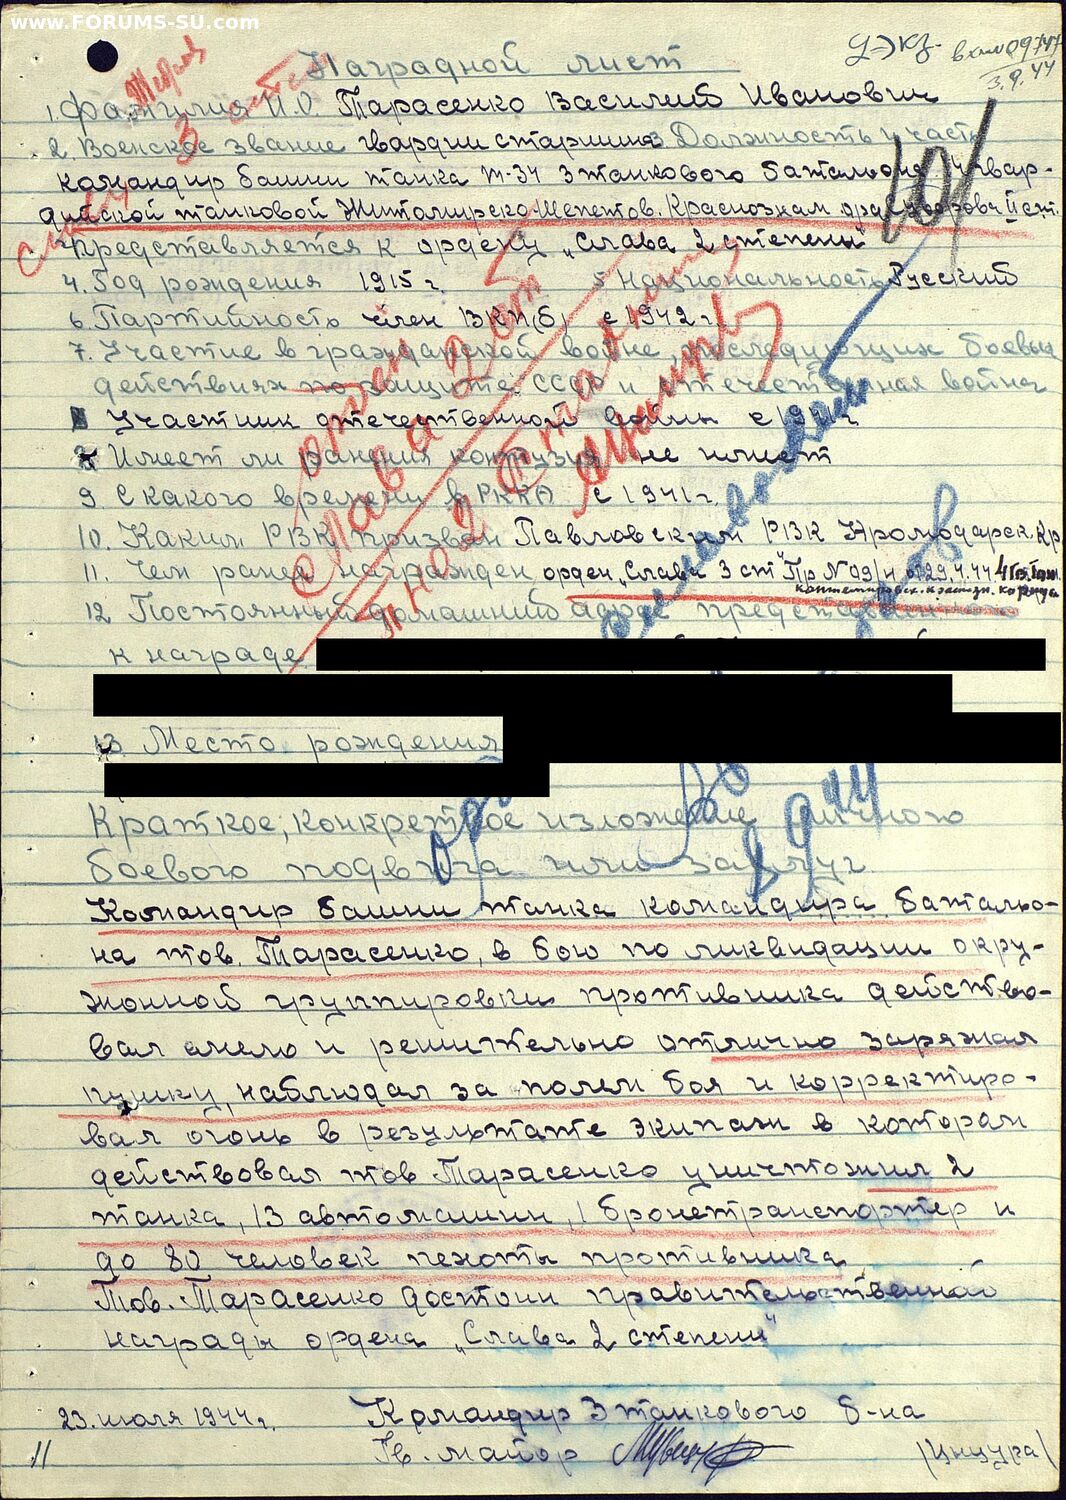 www.FORUMS-SU.com
Наградной лист
3.9.44
1. Фамилия И.О. Тарасенко Василий Иванович
2. Военское звание гвардии старшина 3 Должность и часть
командир башни танка Т-34 3 танкового баталиона 14 гвар-
дейской танковой Житомирско-Шепетов. Краснознам орд Суворова II ст.
Представляется к ордену „Слава 2 степени"
4. Год рождения 1915 г. 5 Национальность Русский
6. Партийность член ВКП(б) с 1942 г.
7. Участие в гражданской войне, последующих боевых
действиях по защите СССР и отечественная война
Участник отечественной войны с 1941 г
8 Имеет ли ранения контузия не имеет
9. С какого времени в РККА с 1941 г.
10. Каким РВК призван Павловским РВК
11. Чем ранее награжден орден „Слава 3 ст" Пр N 09/н от 29.4.44 4 гв. Тан.
12 Постоянный домашний адрес представленного
к награде
13. Место рождения
Краткое, конкретное изложение личного
боевого подвига или заслуг.
Командир башни танка командира баталио-
на тов. Тарасенко, в бою по ликвидации окру-
жонной группировки противника действо-
вал смело и решительно отлично заряжал
пушку, наблюдал за полем боя и корректиро-
вал огонь в результате экипаж в котором
действовал тов. Тарасенко уничтожил 2
танка, 13 автомашин, 1 бронетранспортер и
до 80 человек пехоты противника
Тов. Тарасенко достоин правительственной
награды ордена „Слава 2 степени"
23. июля 1944 г. Командир 3 танкового б-на
Гв. майор
11
орден
Слава 2 ст